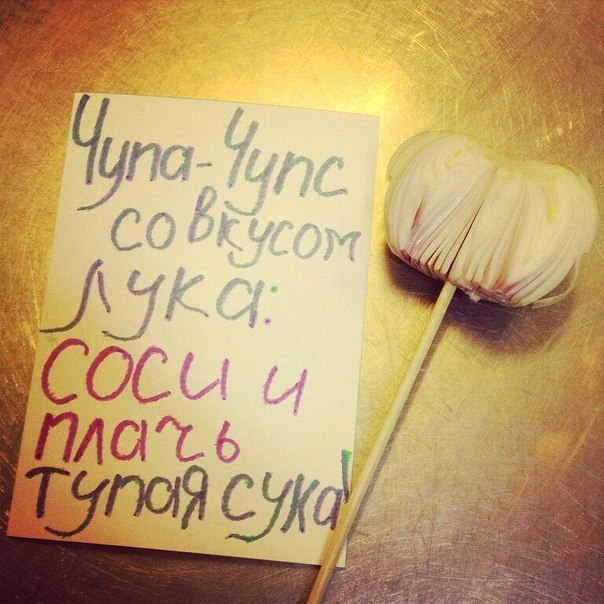 Чупа-Чупс
со вкусом
лука:
соси и
плачь
тупая сука!